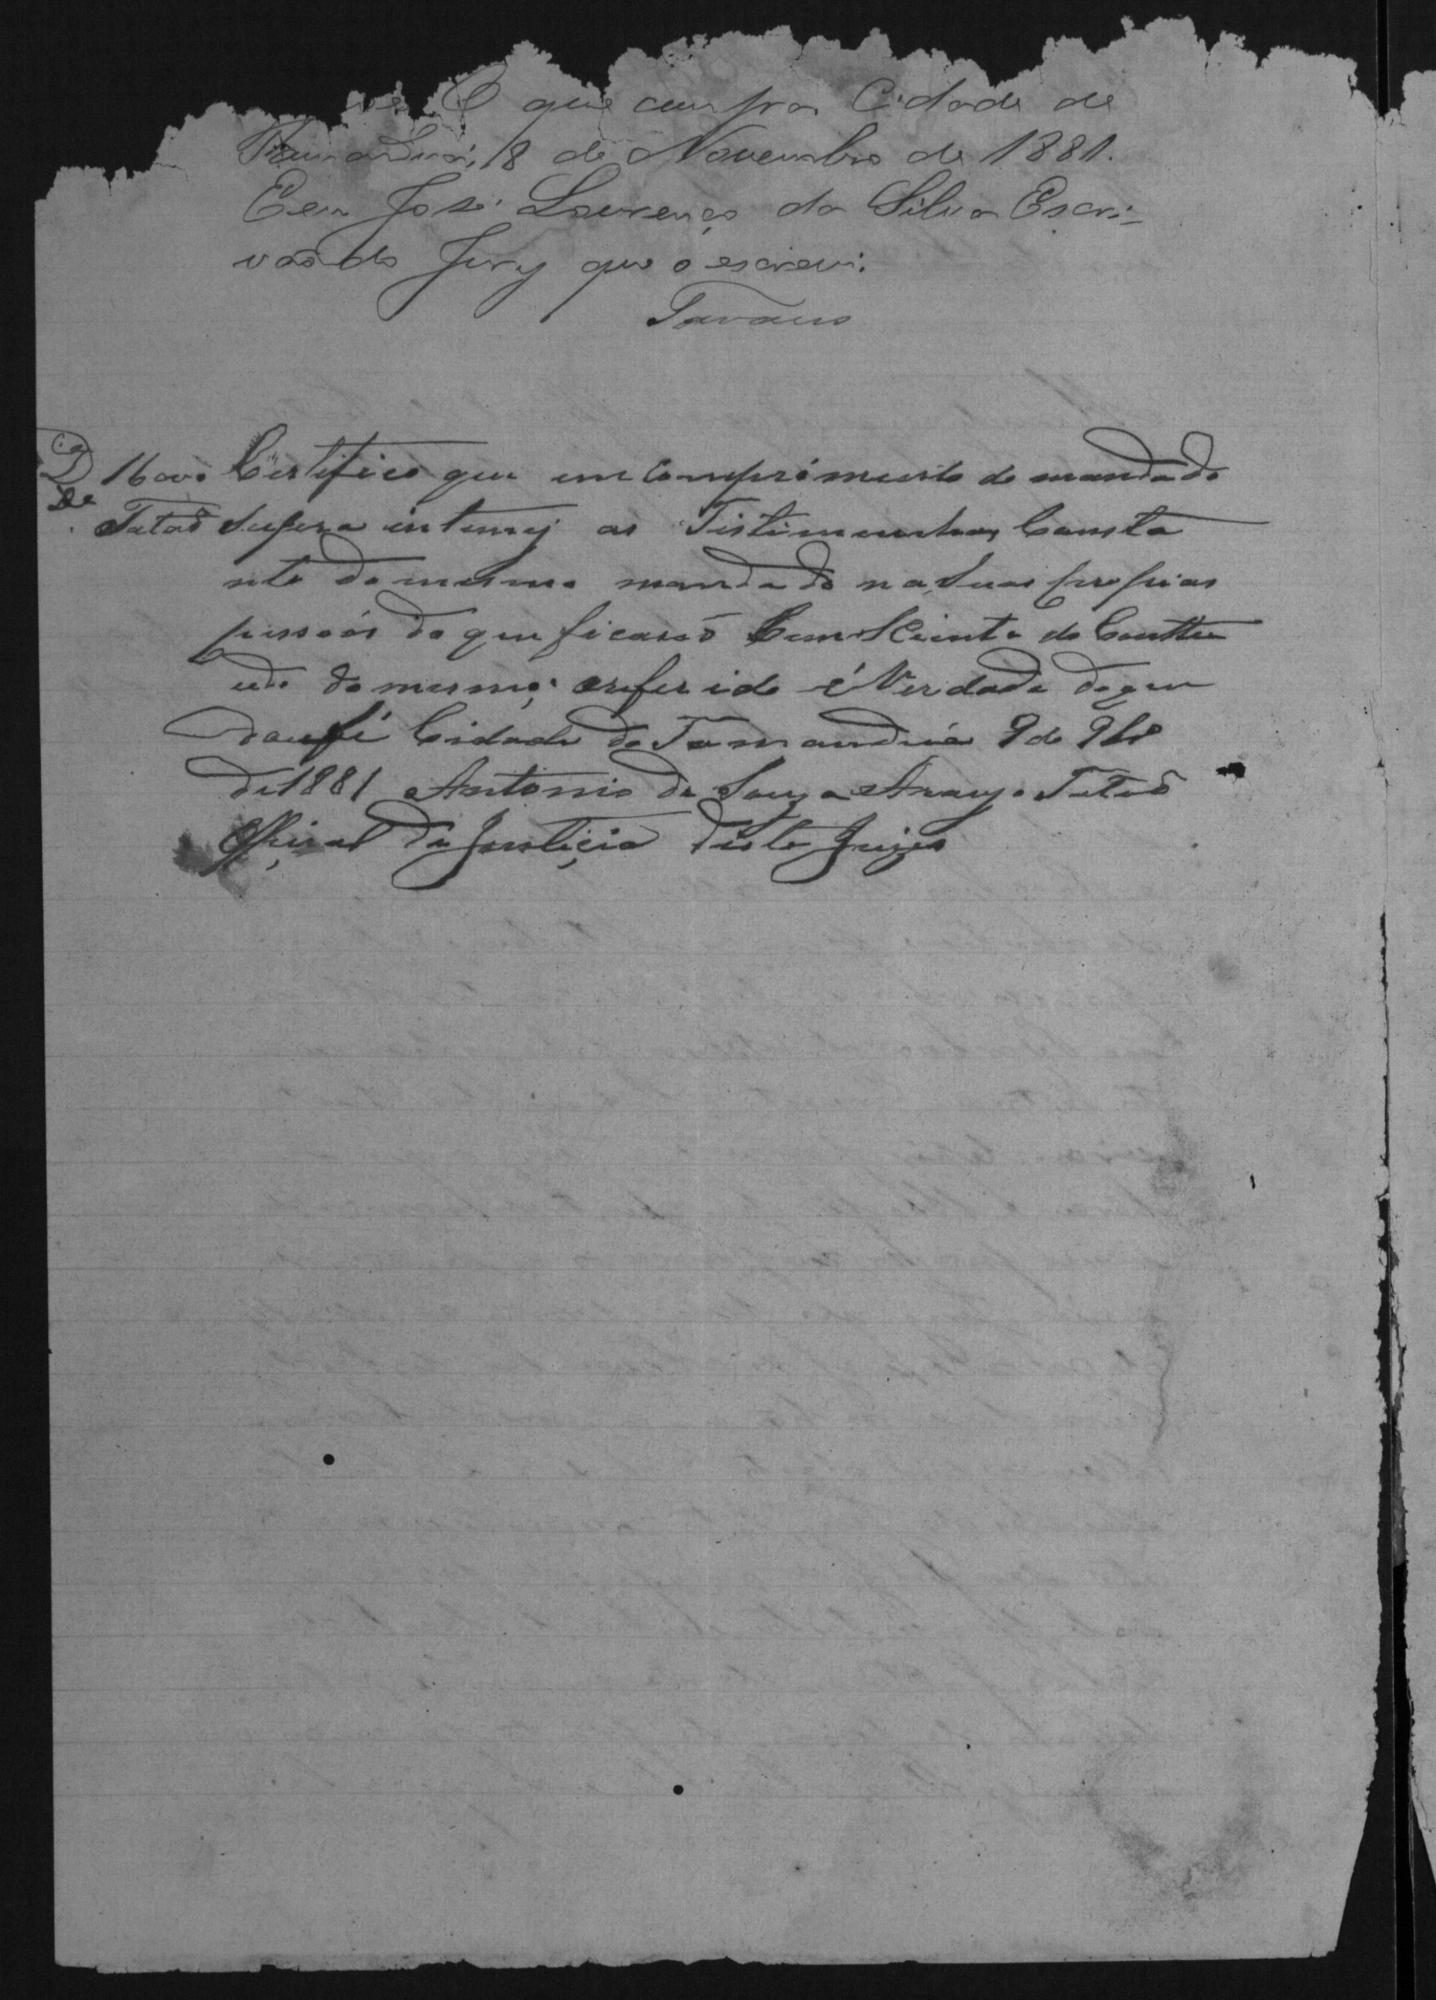 O que cumpra Cidade de
Tamanduá, 8 de Novembro de 1881.
Eeu José Lourenço da Silva Escri-
vaõ do Jury que o escrevi.
Tavares
D 16000 Certifico que em Comprimento do mandado
De Tataõ Supra intimej as Tistimunhas Consta
nte do mesmo mandado na Suas propias
pessoas do que ficaraõ Com Sciente do Conttiu
udo do mesmo; oreferido é Verdade doque
dou fé Cidade do Tamanduá 9 de 9bro
de 1881 Antonio de Souza Araujo Tataõ
Official da Justiçia deste Juizo